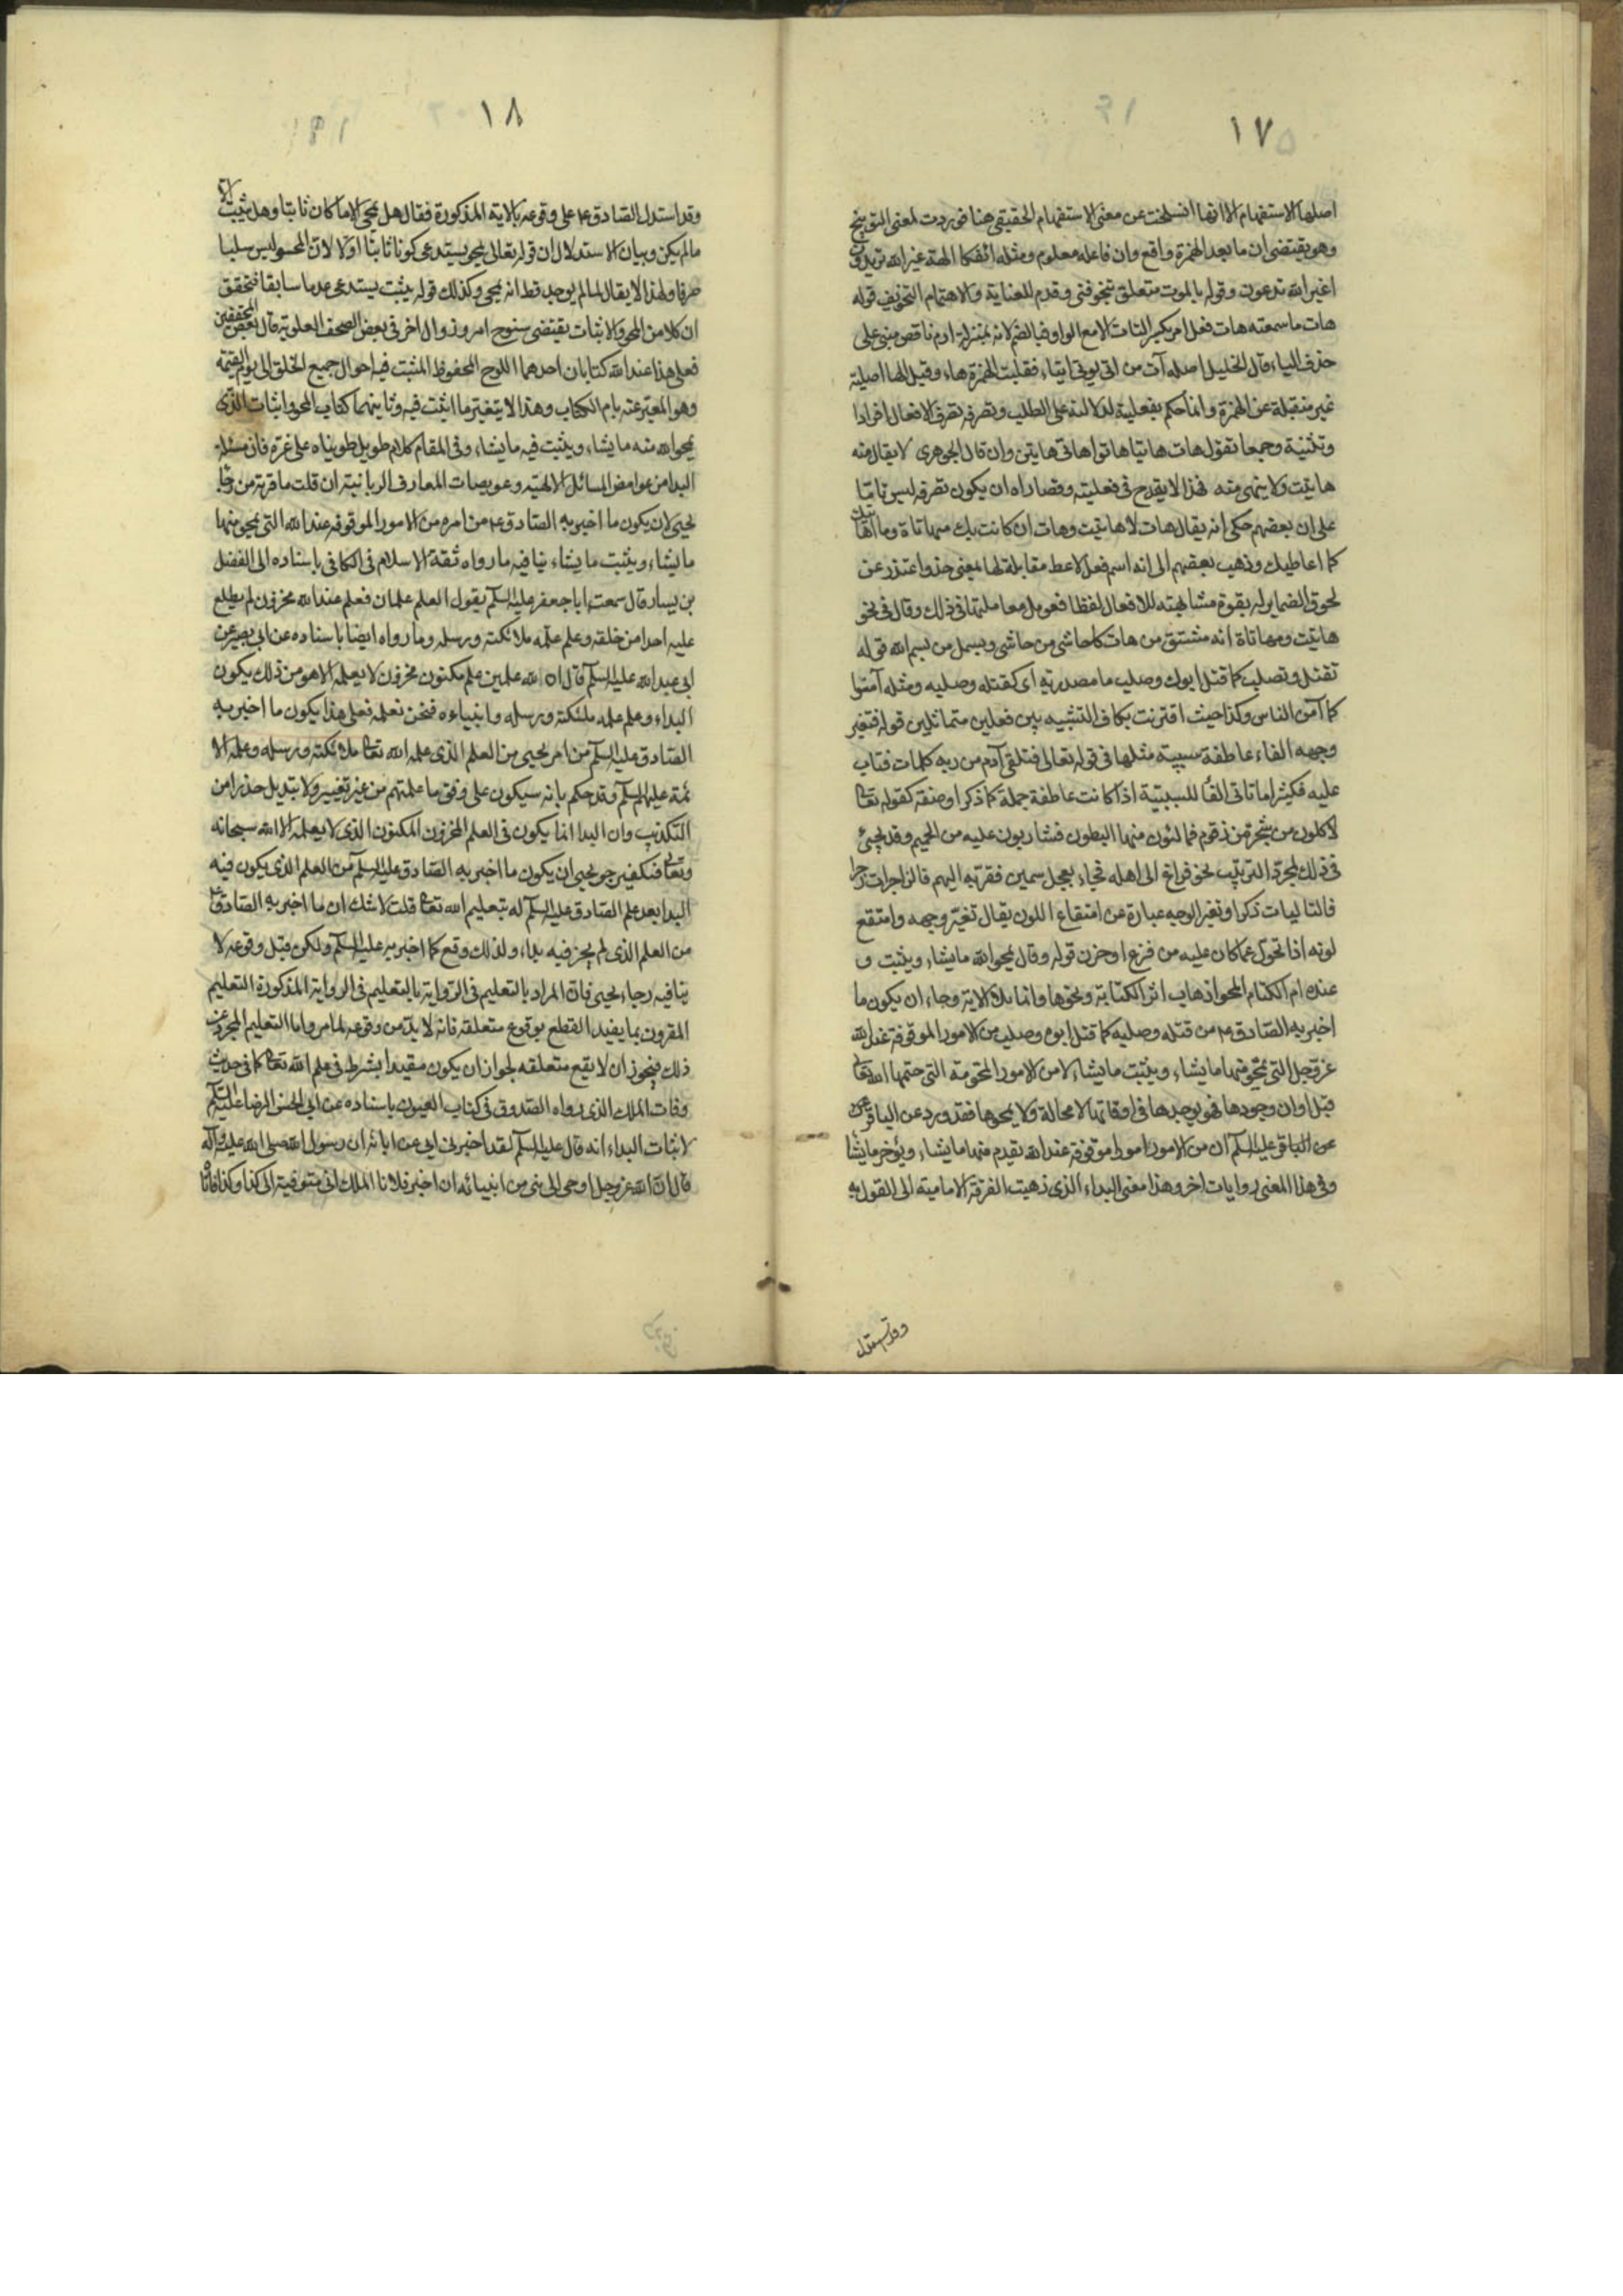 ١٧
اصلها الاستفهام الا انها انسلخت عن معنى الاستفهام الحقيقى هنا فى ردت لمعنى التوبيخ
وهو يقتضى ان ما بعد الهمزة واقع وان فاعله معلوم ومثله ائفكا الهة غير الله تريدون
اغير الله تدعون وقوله بالموت متعلق بتخوفنى وقدم للعناية والاهتمام التخويف قوله
هات ما سمعته هات فعل امر بكسر التاء الا مع الواو فبالضم لانه بمنزلة ارم ناقص مبنى على
حذف الياء وقال الخليل اصله آت من اتى يوتى ايتاء فقلبت الهمزة هاء وقيل الها اصلية
غير منقبلة عن الهمزة وانما حكم بفعلية لدلالته على الطلب وتصرفه تصرف الافعال افرادا
وتثنية وجمعا تقول هات هاتيا هاتوا هاتى هاتين وان قال الجوهرى لا يقال منه
هاتيت ولا ينهى منه فهذا لا يقدح فى فعليته وقصاراه ان يكون تصرفه ليس تاما
على ان بعضهم حكى انه يقال هات لا هاتيت وهات ان كانت بك مهاتاة وما اهاتيك
كما اعاطيك وذهب بعضهم الى انه اسم فعل لاعط مقابلة لها بمعنى خذ واعتذر عن
لحوق الضماير له بقوة مشابهته للافعال لفظا فعومل معاملتها فى ذلك وقال فى نحو
هاتيت ومهاتاة انه مشتق من هات كاحاشى من حاشى وبسمل من بسم الله قوله
تقتل وتصلب كما قتل ابوك وصلب ما مصدرية اى كقتله وصلبه ومثله آمنوا
كما آمن الناس وكذا حيث اقترنت بكاف التشبيه بين فعلين متماثلين قوله فتغير
وجهه الفاء عاطفة سببية مثلها فى قوله تعالى فتلقى آدم من ربه كلمات فتاب
عليه فكثيرا ما تاتى الفأ للسببية اذا كانت عاطفة جملة كما ذكر او صفة كقوله تعا
لاكلون من شجرة من زقوم فمالئون منها البطون فشاربون عليه من الحميم وقد يجئ
فى ذلك لمجرد الترتيب نحو فراغ الى اهله فجاء بعجل سمين فقربه اليهم فالزاجرات زجرا
فالتاليات ذكرا وتغير الوجه عبارة عن امتقاع اللون يقال تغير وجهه وامتقع
لونه اذا تحول عما كان عليه من فزع او حزن قوله وقال يمحو الله ما يشاء ويثبت و
عنده ام الكتاب المحو اذهاب اثر الكتابة ونحوها وانما تلا الاية وجاء ان يكون ما
اخبر به الصادق ع من قتله وصلبه كما قتل ابوه وصلب من الامور الموقوفة عند الله
عز وجل التى يمحو منها ما يشاء ويثبت ما يشاء لا من الامور المحتومة التى حتمها الله تعا
قبل اوان وجودها فهو يوجدها فى اوقاتها لا محالة ولا يمحوها فقد ورد عن الباقر ع
عن الباقر عليه السلام ان من الامور امورا موقوفة عند الله يقدم منها ما يشاء ويؤخر ما يشا
وفى هذا المعنى روايات اخر وهذا معنى البداء الذى ذهبت الفرقة الامامية الى القول به
وقد استدل
١٨
وقد استدل الصادق ع على وقوعه بالاية المذكورة فقال هل يمحى الا ما كان ثابتا وهل يثبت الا
ما لم يكن وبيان الاستدلال ان قوله تعالى يمحو يستدعى كونا ثابتا اولا لان المحو ليس سلبا
صرفا ولهذا لا يقال لما لم يوجد قط انه يمحى وكذلك قوله يثبت يستدعى عدما سابقا فتحقق
ان كلا من المحو والاثبات يقتضى سنوح امر وزوال اخر فى بعض الصحف العلوية قال بعض المحققين
فعلى هذا عند الله كتابان احدهما اللوح المحفوظ المثبت فيه احوال جميع الخلق الى يوم القيمة
وهو المعبر عنه بام الكتاب وهذا لا يتغير ما اثبت فيه وثانيهما كتاب المحو واثبات الذى
يمحو الله منه ما يشاء ويثبت فيه ما يشاء وفى المقام كلام طويل طويناه على غرة فان مسئلة
البدا من غوامض المسائل الالهية وعويصات المعارف الربانية ان قلت ما قربة من رجا
يحيى لان يكون ما اخبر به الصادق ع من امره من الامور الموقوفه عند الله التى يمحو منها
ما يشاء ويثبت ما يشاء ينافيه ما رواه ثقة الاسلام فى الكافى باسناده الى الفضل
بن يسار قال سمعت ابا جعفر عليه السلم يقول العلم علمان فعلم عند الله مخزون لم يطلع
عليه احدا من خلقه وعلم علمه ملائكته ورسله وما رواه ايضا باسناده عن ابى بصير عن
ابى عبد الله عليه السلم قال ان لله علمين علم مكنون مخزون لا يعلمه الا هو من ذلك يكون
البداء وعلم علمه ملئكته ورسله وانبياءه فنحن نعلمه فعلى هذا يكون ما اخبر به
الصادق عليه السلم من امر يحيى من العلم الذى علمه الله تعا ملائكته ورسله وعلمه الا
ئمة عليهم السلم وقد حكم بانه سيكون على وفق ما علمتهم من غير تغيير ولا تبديل حذرا من
التكذيب وان البدا انما يكون فى العلم المخزون المكنون الذى لا يعلمه الا الله سبحانه
وتعا فكيف يرجو يحيى ان يكون ما اخبر به الصادق عليه السلم من العلم الذى يكون فيه
البدا بعد علم الصادق عليه السلم له بتعليم الله تعا قلت لا شك ان ما اخبر به الصادق ع
من العلم الذى لم يجز فيه بداء ولذلك وقع كما اخبر به عليه السلم ولكن قبل وقوعه لا
ينافيه رجاء يحيى فان المراد بالتعليم فى الرواية بالتعليم فى الرواية المذكورة التعليم
المقرون بما يفيد القطع بوقوع متعلقه فانه لا بد من وقوعه لما مر واما التعليم المجرد عن
ذلك فيجوز ان لا يقع متعلقه لجواز ان يكون مقيدا بشرط فى علم الله تعا كما فى حديث
وفات الملك الذى رواه الصدوق فى كتاب العيون باسناده عن ابى الحسن الرضا عليه السلم
لاثبات البداء انه قال عليه السلم لقد اخبرنى ابى عن ابائه ان رسول الله صلى الله عليه واله
قال ان الله عز وجل اوحى الى نبى من انبيائه ان اخبر فلانا الملك انى متوفيه الى كذا وكذا فاتا